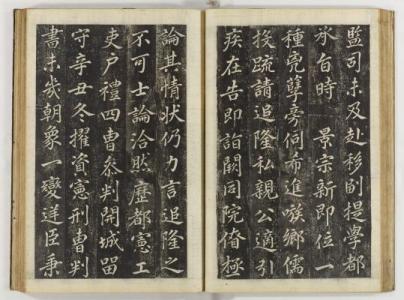 監司未及赴移副提學都
承旨時 景宗新即位一
種兇孽旁伺希進嗾鄉儒
投疏請追隆私親公適引
疾在告即詣闕同院僚極
論其情狀仍力言追隆之
不可士論洽然歷都憲工
吏戶禮四曹參判開城留
守辛丑冬擢資憲刑曹判
書未幾朝象一變逆臣秉